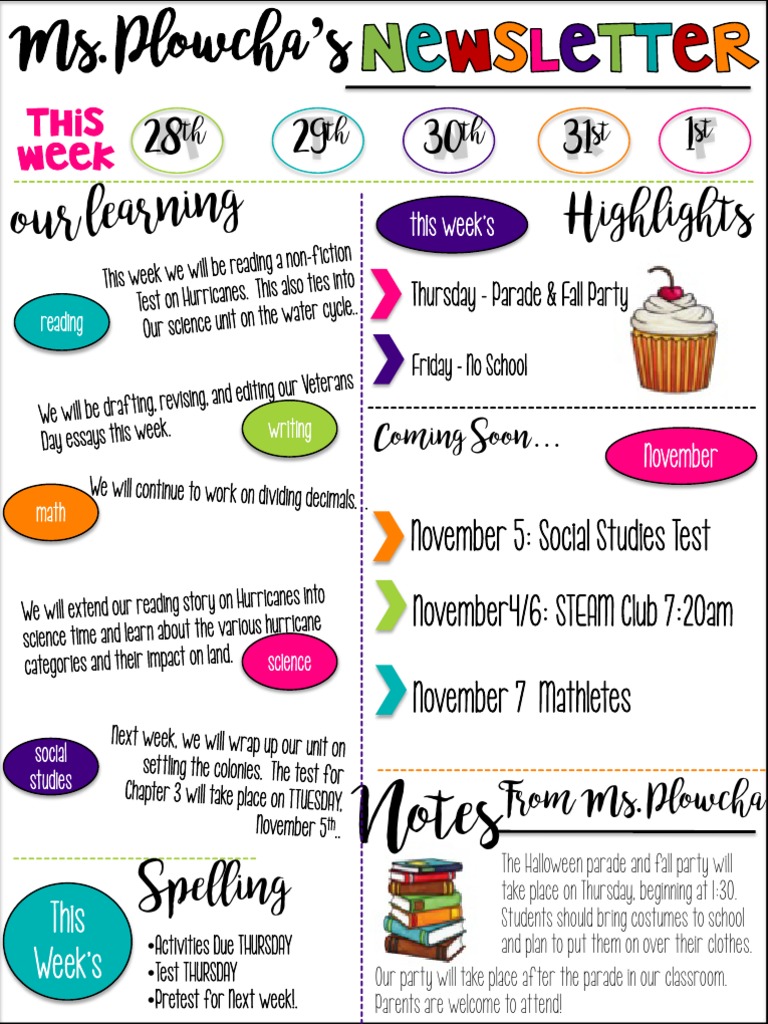 Ms. Plowcha's NEWSLETTER
THIS WEEK
28th 29th 30th 31st 1st
our learning
reading
This week we will be reading a non-fiction
Test on Hurricanes. This also ties into
Our science unit on the water cycle..
We will be drafting, revising, and editing our Veterans
Day essays this week.
writing
math
We will continue to work on dividing decimals. . .
We will extend our reading story on Hurricanes into
science time and learn about the various hurricane
categories and their impact on land.
science
social
studies
Next week, we will wrap up our unit on
settling the colonies. The test for
Chapter 3 will take place on TTUESDAY,
November 5th..
This
Week's
Spelling
•Activities Due THURSDAY
•Test THURSDAY
•Pretest for Next week!.
this week's
Highlights
Thursday - Parade & Fall Party
Friday - No School
Coming Soon...
November
November 5: Social Studies Test
November4/6: STEAM Club 7:20am
November 7 Mathletes
Notes From Ms. Plowcha
The Halloween parade and fall party will
take place on Thursday, beginning at 1:30.
Students should bring costumes to school
and plan to put them on over their clothes.
Our party will take place after the parade in our classroom.
Parents are welcome to attend!